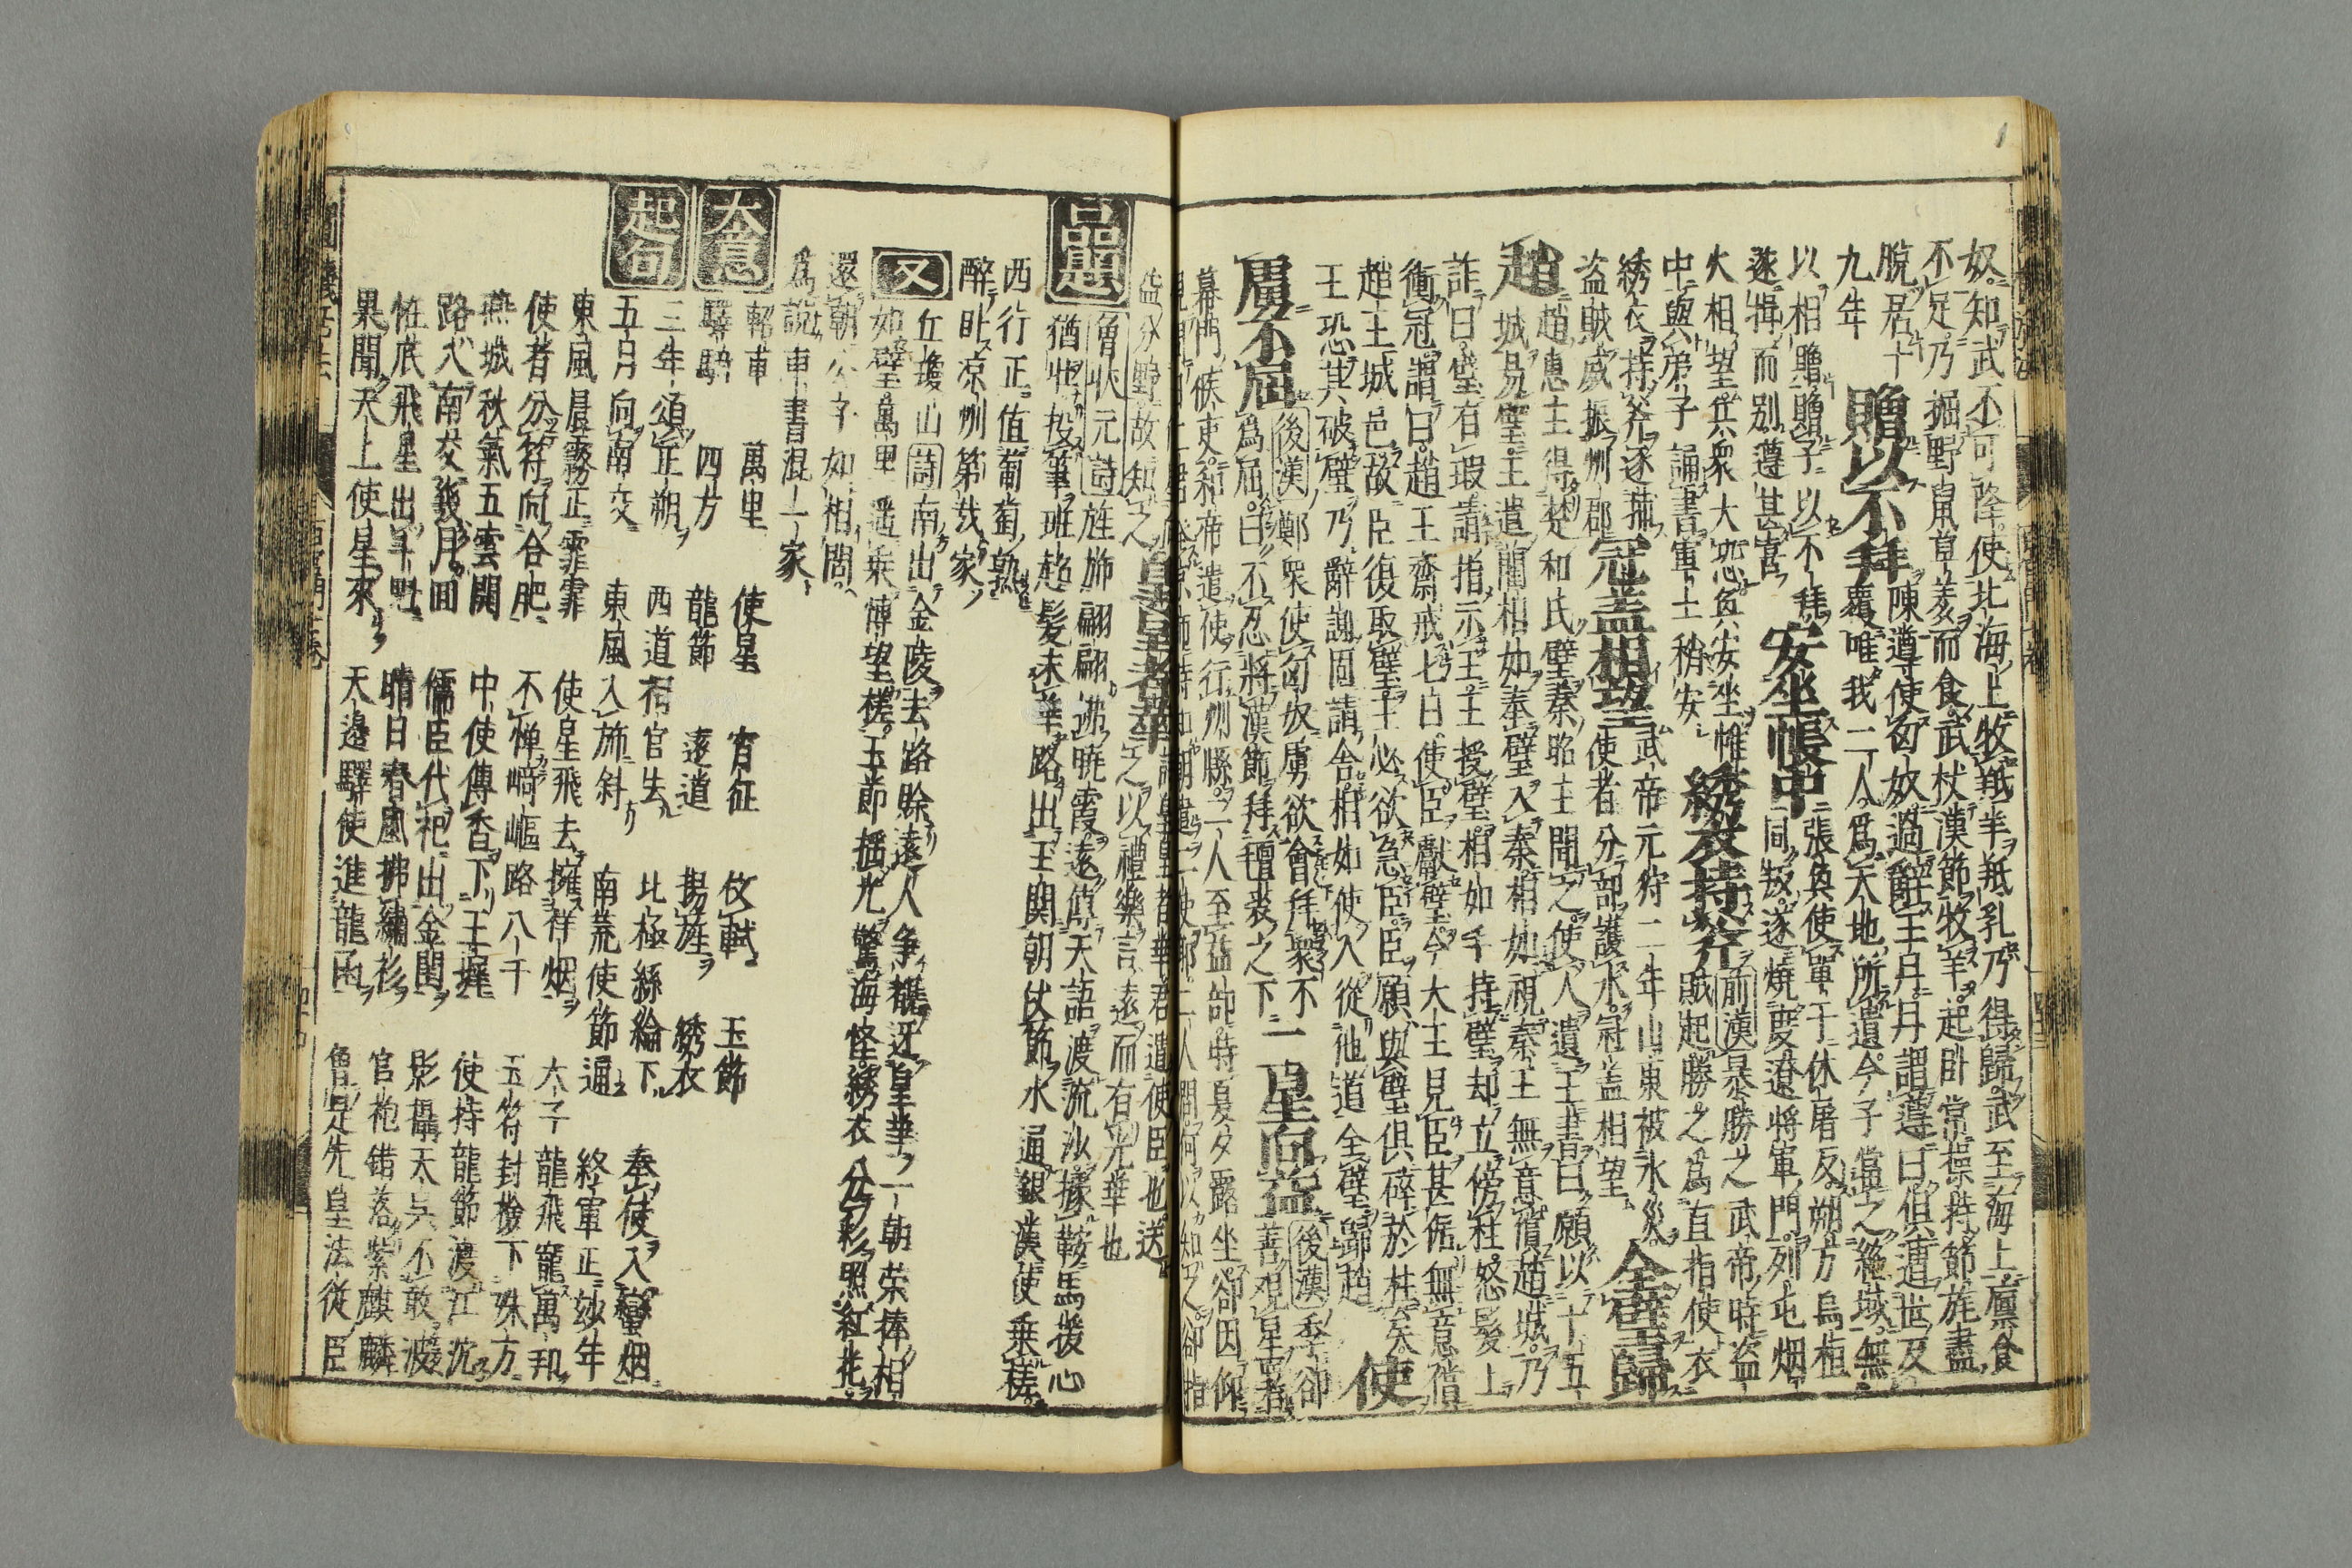 奴知武不可降使北海上牧羝羊羝乳乃得歸武至海上廩食
不足乃掘野鼠草羑而食武杖漢節牧羊起卧常操持節旄盡
脫居十
九年
贈以不拜
陳遵使匈奴過辭王丹丹謂遵曰俱遭世反
覆唯我二人爲天地所遺今子當之絕域無
以相贈贈子以不拜
遂揖而別遵甚喜
安坐帳中
張奐使單于休屠反朔方烏桓
同叛遂燒度遼將軍門列屯烟
火相望兵衆大恐奐安坐帷
中與弟子誦書軍士稍安
綉衣持斧
前漢暴勝之武帝時盗
賊起勝之爲直指使衣
綉衣持斧逐捕
盗賊威振州郡
冠蓋相望
武帝元狩二年山東被水災
使者分部護水冠蓋相望
全璧歸
趙
趙惠王得楚和氏璧秦昭王聞之使人遺王書曰願以十五
城易璧王遣藺相如奉璧入秦相如視秦王無意償趙城乃
詐曰璧有瑕請指示王王授璧相如千持璧却立傍柱怒髮上
衝冠謂曰趙王齋戒七日使臣獻璧今大王見臣甚倨無意償
趙王城邑故臣復取璧王必欲急臣臣願與璧俱碎於柱矣
王恐其破璧乃辭謝固請舍相如使人從他道全璧歸趙
使
虜不屈
後漢鄭衆使匈奴虜欲會拜衆不
爲屈曰不忍將漢節拜氊裘之下
二星向益
後漢季郃
善觀星宿者
幕門候吏和帝遣使行州縣二人至益部時夏夕露坐郃因仰
益分野故知之
皇皇者華
之以禮樂言遠而有光華也
品題
僧狀元詩旌旆翩翩拂曉霞遠值天語渡流沙據鞍馬援心
猶壯投筆班超髮未華路出王関朝仗節水通銀漢使乗槎
西行正值葡萄熟
醉卧凉州第幾家
又
丘瓊山詩南出金陵去路賒遠人争覩迓皇華一朝荣捧相
如璧萬里遥乗博望槎玉節揺光驚海怪綉衣分彩照紅花
還朝公字如相問
爲說車書混一家
大意
軺車 萬里 使星 宵征 伏軾 玉節
驛騎 四方 龍節 遠道 揚旌 綉衣
起句
三年頒正朔 西道宿官去 北極絲綸下 奉使入蠻烟
五月向南交 東風入旆斜 南荒使節逼 終軍正妙年
東風晨霧正霏霏 使星飛去擁祥烟 六子龍飛寵萬邦
使者分符向合肥 不憚﨑嶇路八千 玉符封撥下殊方
燕城秋氣五雲開 中使傳香下玉墀 使持龍節渡江沈
路入南交幾月回 儒臣代祀出金閨 影攝天吳不敢波
帷底飛星出斗魁 晴日春風拂繡衫 官袍錯落紫麒麟
果聞天上使星來 天邊驛使進龍函 魯是先皇法從臣